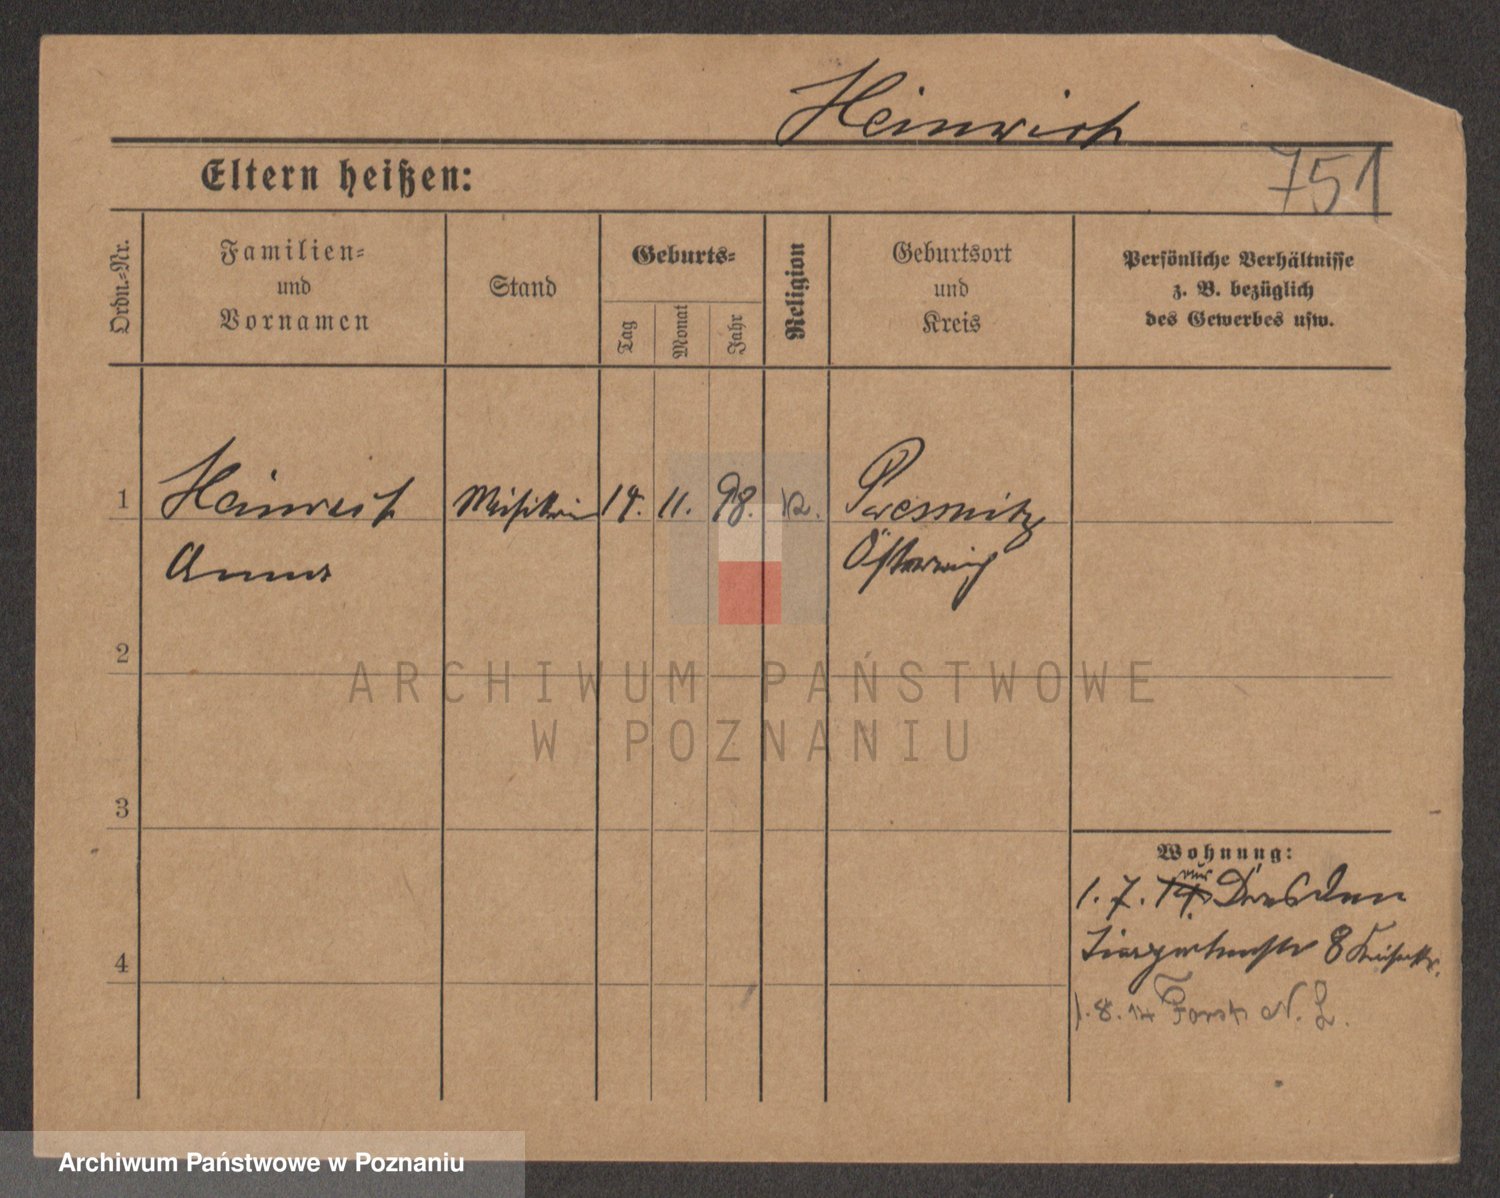 Heinrich
Eltern heißen:
751
Ordn.-Nr.
Familien-
und
Vornamen
Stand
Geburts-
Tag
Monat
Jahr
Religion
Geburtsort
und
Kreis
Persönliche Verhältnisse
z. B. bezüglich
des Gewerbes usw.
1
Heinrich
14. 11. 98.
Pressnitz
Anna
Österreich
2
ARCHIWUM PAŃSTWOWE
W POZNANIU
3
Wohnung:
1. 7. 14 Dresden
8
4
1. 8. 14 Forst N. L.
Archiwum Państwowe w Poznaniu